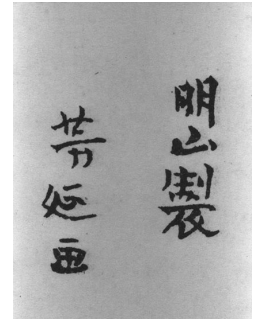 明山製
芳延画